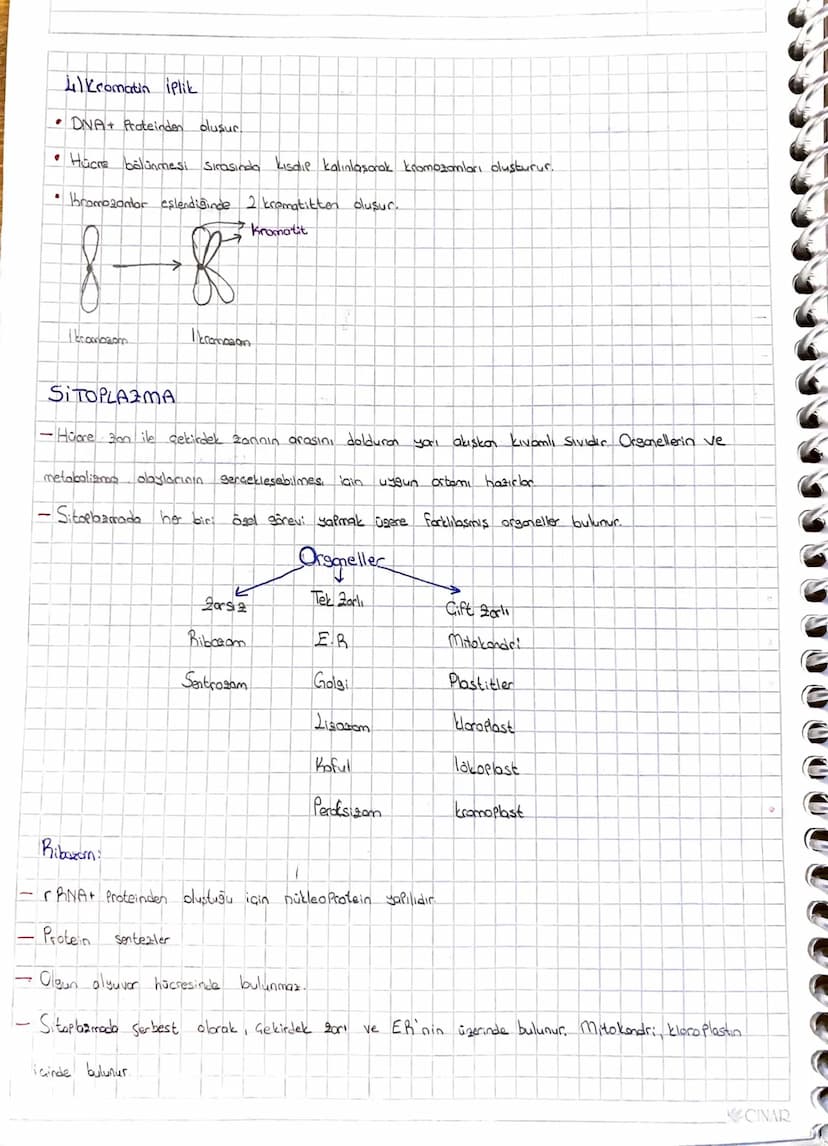 4) Kromatin iplik
• DNA + Proteinden oluşur.
• Hücre bölünmesi sırasında kısalıp kalınlaşarak kromozomları oluşturur.
• Kromozomlar eşlendiğinde 2 kromatitten oluşur.
Kromatit
1 kromozom 1 kromozom
SİTOPLAZMA
- Hücre zarı ile çekirdek zarının arasını dolduran yarı akışkan kıvamlı sıvıdır. Organellerin ve
metabolizma olaylarının gerçekleşebilmesi için uygun ortamı hazırlar
- Sitoplazmada her biri özel görevi yapmak üzere farklılaşmış organeller bulunur.
Organeller
Zarsız Tek Zarlı Çift Zarlı
Ribozom E.R Mitokondri
Sentrozom Golgi Plastitler
Lizozom kloroplast
Koful lökoplast
Peroksizom kromoplast
Ribozom:
- rRNA + Proteinden oluştuğu için nükleoprotein yapılıdır.
- Protein sentezler
- Olgun alyuvar hücresinde bulunmaz.
- Sitoplazmada serbest olarak, çekirdek zarı ve ER'nin üzerinde bulunur. Mitokondri, kloroplastın
içinde bulunur.
ÇINAR